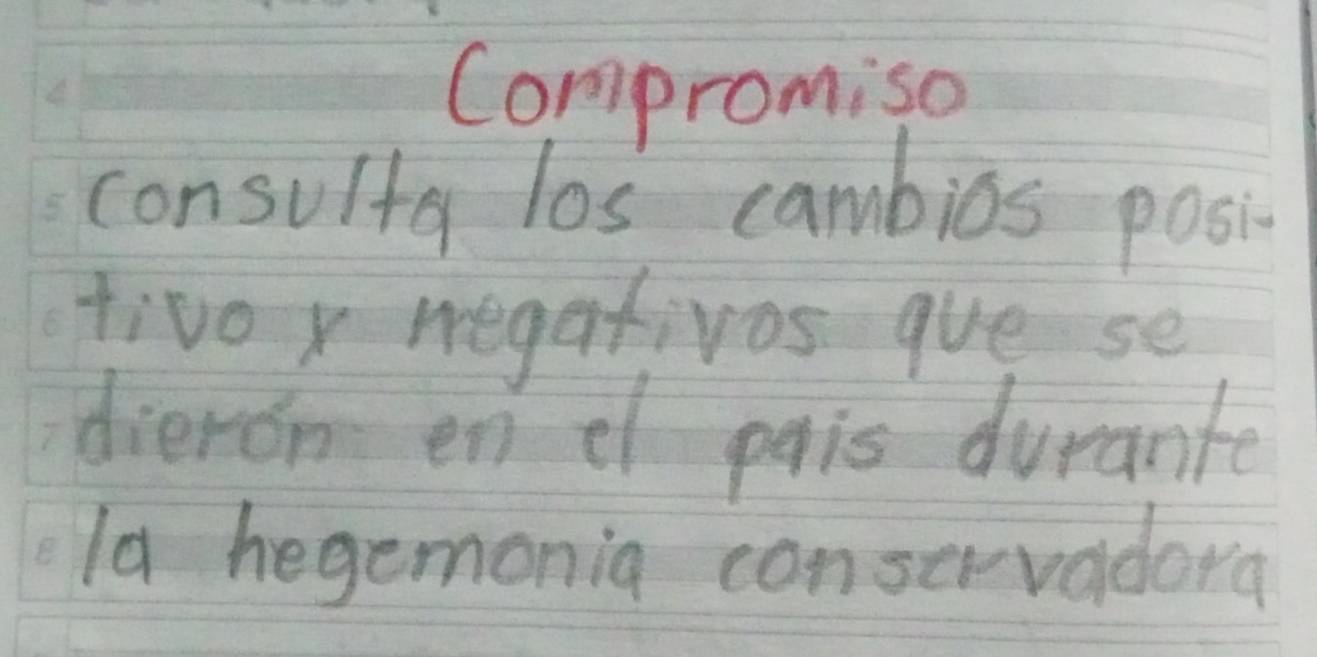 Compromiso
consulta los cambios posi-
tivo y negativos que se
dierón en el pais durante
la hegemonia conservadora